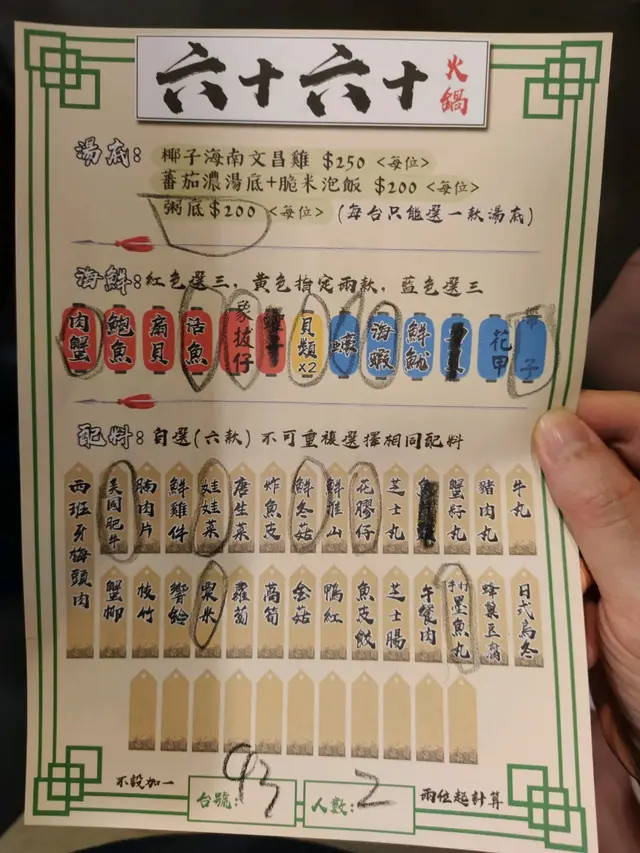 六十六十 火鍋
湯底: 椰子海南文昌雞 $250 <每位>
蕃茄濃湯底+脆米泡飯 $200 <每位>
粥底 $200 <每位> (每台只能選一款湯底)
海鮮: 紅色選三, 黃色指定兩款, 藍色選三
肉蟹 鮑魚 扇貝 活魚 象拔仔 貝類x2 海蝦 鮮魷 花甲
配料: 自選(六款) 不可重複選擇相同配料
西班牙梅頭肉 美國肥牛 腩肉片 鮮雞件 娃娃菜 唐生菜 炸魚皮 鮮冬菇 鮮淮山 花膠仔 芝士丸 蟹籽丸 豬肉丸 牛丸
蟹柳 枝竹 響鈴 粟米 蘿蔔 萵筍 金菇 鴨紅 魚皮餃 芝士腸 午餐肉 手打墨魚丸 蜂巢豆腐 日式烏冬
不設加一 台號: 93 人數: 2 兩位起計算